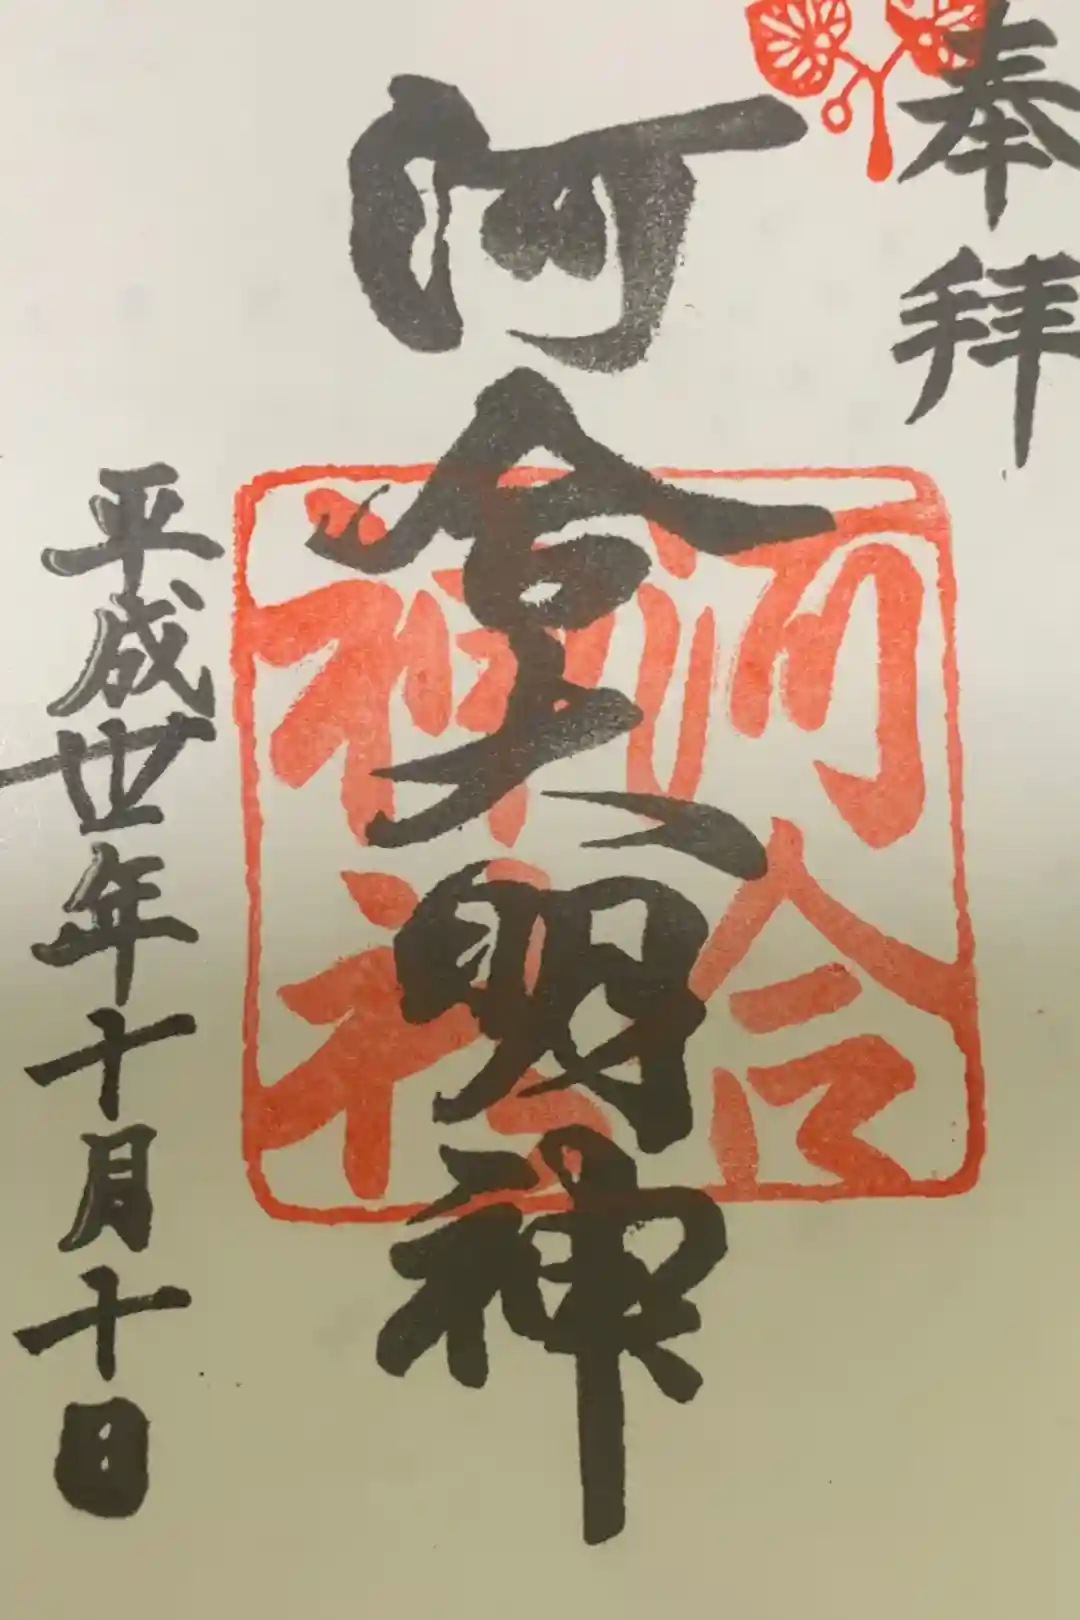 奉拝
河合大明神
河合
神社
平成丗年十月十日